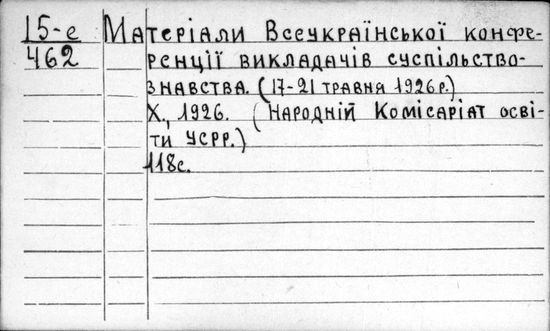 15-е Матеріали Всеукраїнської конфе-
462 ренції викладачів суспільство-
знавства. (17-21 травня 1926р.)
Х., 1926. (Народній Комісаріат осві-
ти УСРР.)
118с.